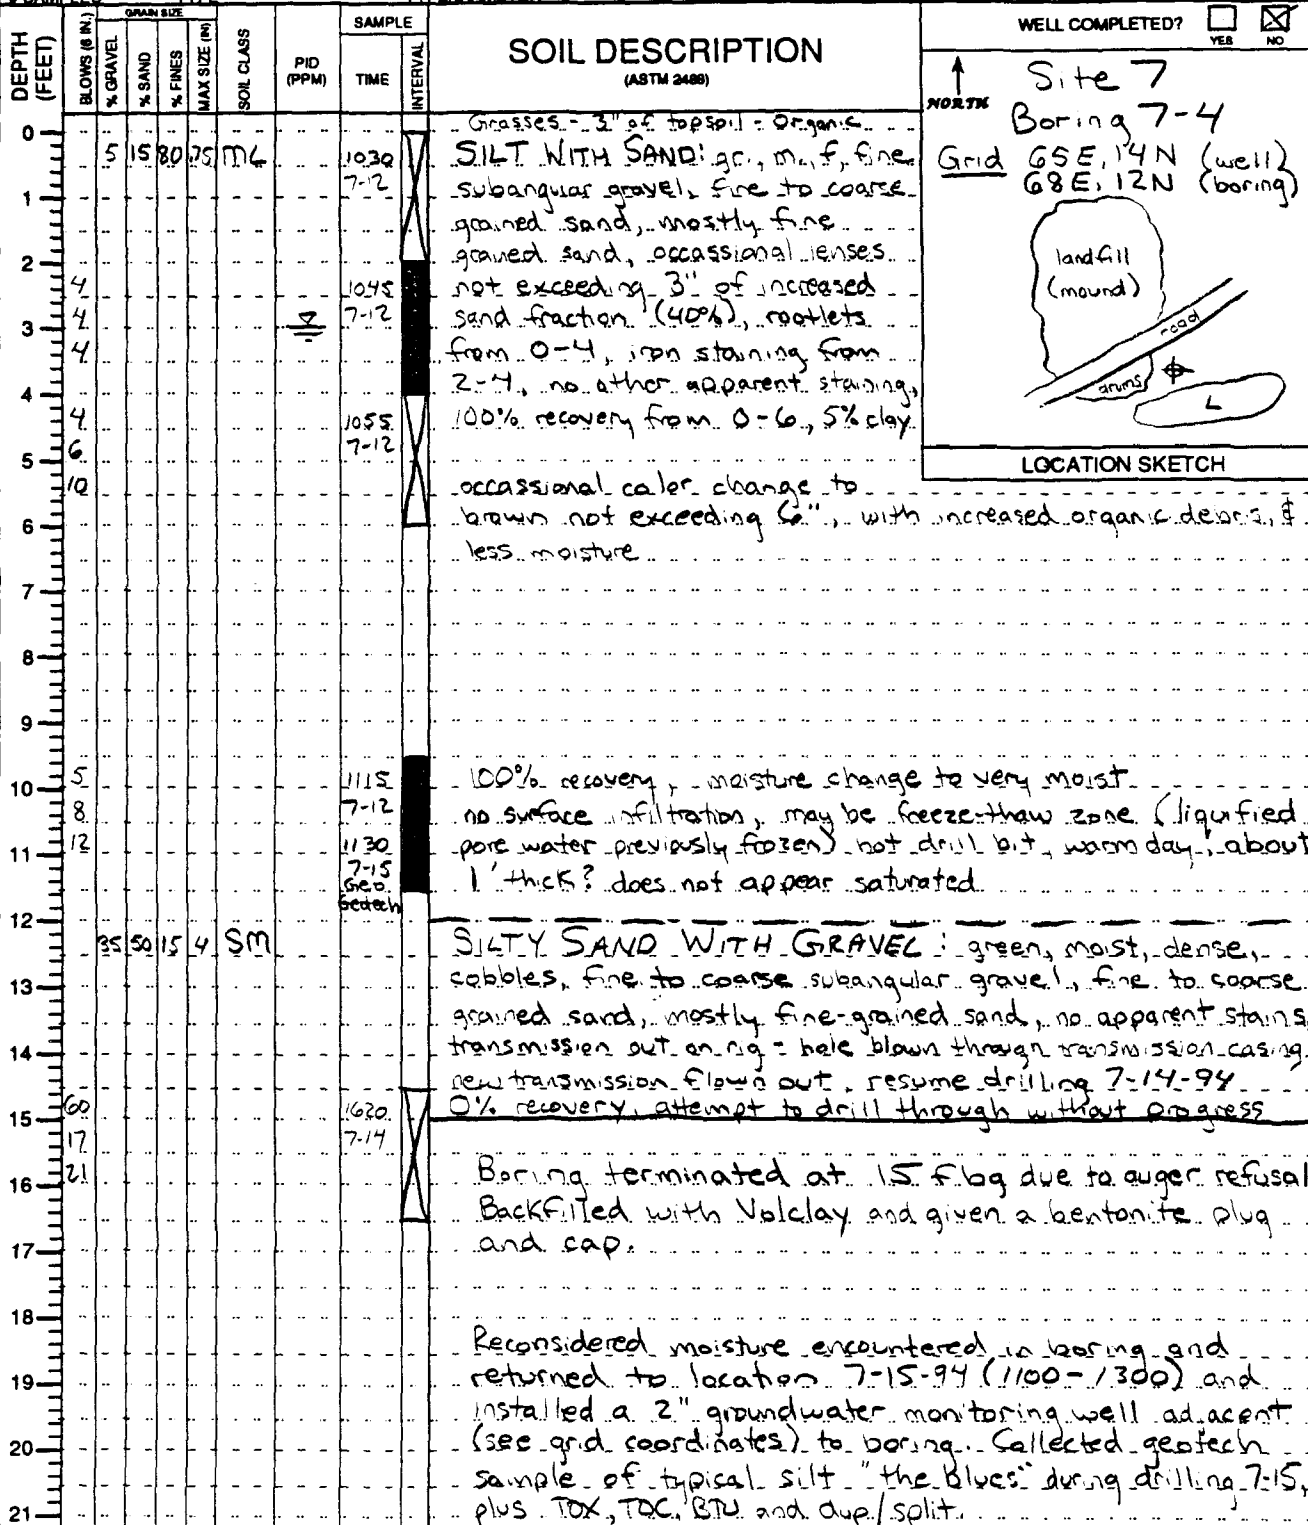 DEPTH (FEET)
BLOWS (6 IN.)
GRAIN SIZE
% GRAVEL
% SAND
% FINES
MAX SIZE (IN)
SOIL CLASS
PID (PPM)
SAMPLE
TIME
INTERVAL
SOIL DESCRIPTION
(ASTM 2488)
WELL COMPLETED?
YES
NO
NORTH
Site 7
Boring 7-4
Grid 65E, 14N (well)
68E, 12N (boring)
landfill
(mound)
road
drums
L
LOCATION SKETCH
Grasses - 3" of topsoil - Organic
0
5 15 80 .75 ML 1030 SILT WITH SAND: gr., m., f, fine
7-12 subangular gravel, fine to coarse
1
grained sand, mostly fine
2 grained sand, occassional lenses
4 1045 not exceeding 3" of increased
4 7-12 sand fraction (40%), rootlets
3
4 from 0-4, iron staining from
4 2-4, no other apparent staining,
4 1055 100% recovery from 0-6, 5% clay
6 7-12
5
10 occassional color change to
6 brown not exceeding 6", with increased organic debris, &
less moisture
7
8
9
5 1115 100% recovery, moisture change to very moist
10
8 7-12 no surface infiltration, may be freeze-thaw zone (liquified
12 1130 pore water previously frozen) hot drill bit, warm day, about
11 7-15
Geo 1' thick? does not appear saturated
Geotech
12
35 50 15 4 SM SILTY SAND WITH GRAVEL: green, moist, dense,
13 cobbles, fine to coarse subangular gravel, fine to coarse
grained sand, mostly fine-grained sand, no apparent stains,
14 transmission out on rig - hole blown through transmission casing
new transmission flown out, resume drilling 7-14-94
60 1620 0% recovery, attempt to drill through without progress
15
17 7-14
21 Boring terminated at 15 fbg due to auger refusal
16
Backfilled with Volclay and given a bentonite plug
17 and cap.
18
Reconsidered moisture encountered in boring and
19 returned to location 7-15-94 (1100-1300) and
installed a 2" groundwater monitoring well adjacent
20 (see grid coordinates) to boring. Collected geotech
sample of typical silt "the blues" during drilling 7-15,
21 plus TOX, TOC, BTU and dup/split.